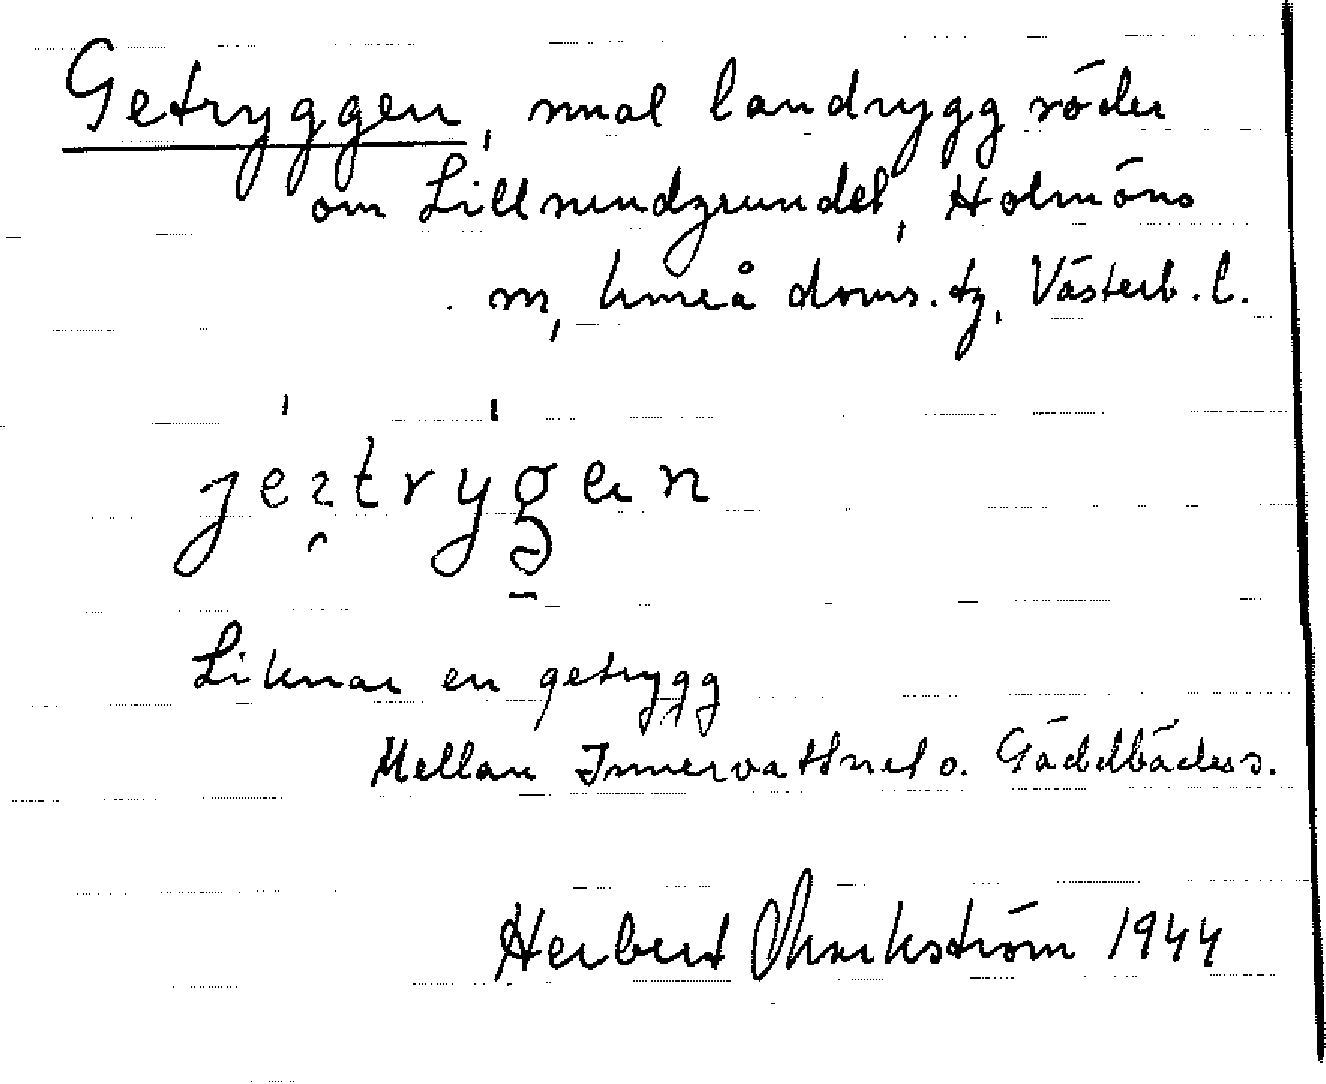 Getryggen, smal landrygg söder
om Lillsundgrundet, Holmöns
sn, Umeå doms. tg, Västerb. l.
Liknar en getrygg
Mellan Innervattnet o. Gäddbädus.
Herbert Markström 1944